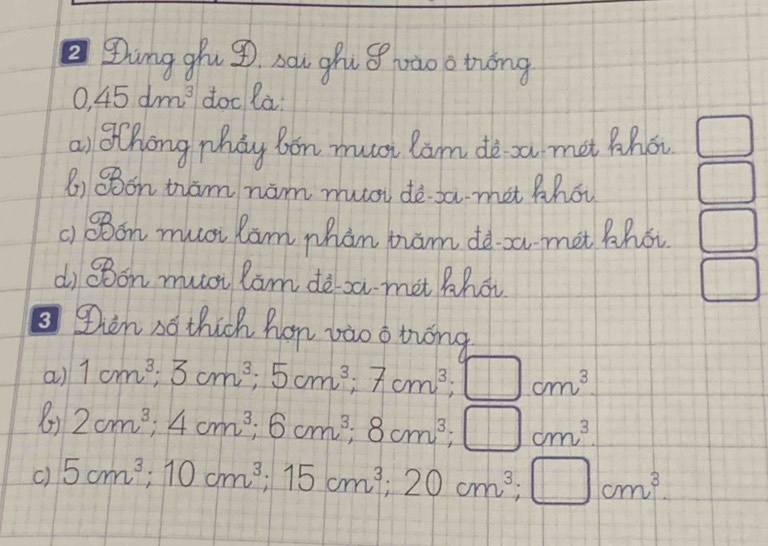 2 Đúng ghi Đ, sai ghi S vào ô trống
0,45 dm³ đọc là:
a) Không phẩy bốn mươi lăm đề-xi-mét khối.
b) Bốn trăm năm mươi đề-xi-mét khối
c) Bốn mươi lăm phần trăm đề-xi-mét khối.
d) Bốn mươi lăm đề-xi-mét khối.
3 Điền số thích hợp vào ô trống.
a) 1 cm³; 3 cm³; 5 cm³; 7 cm³; cm³.
b) 2 cm³; 4 cm³; 6 cm³; 8 cm³; cm³.
c) 5 cm³; 10 cm³; 15 cm³; 20 cm³; cm³.